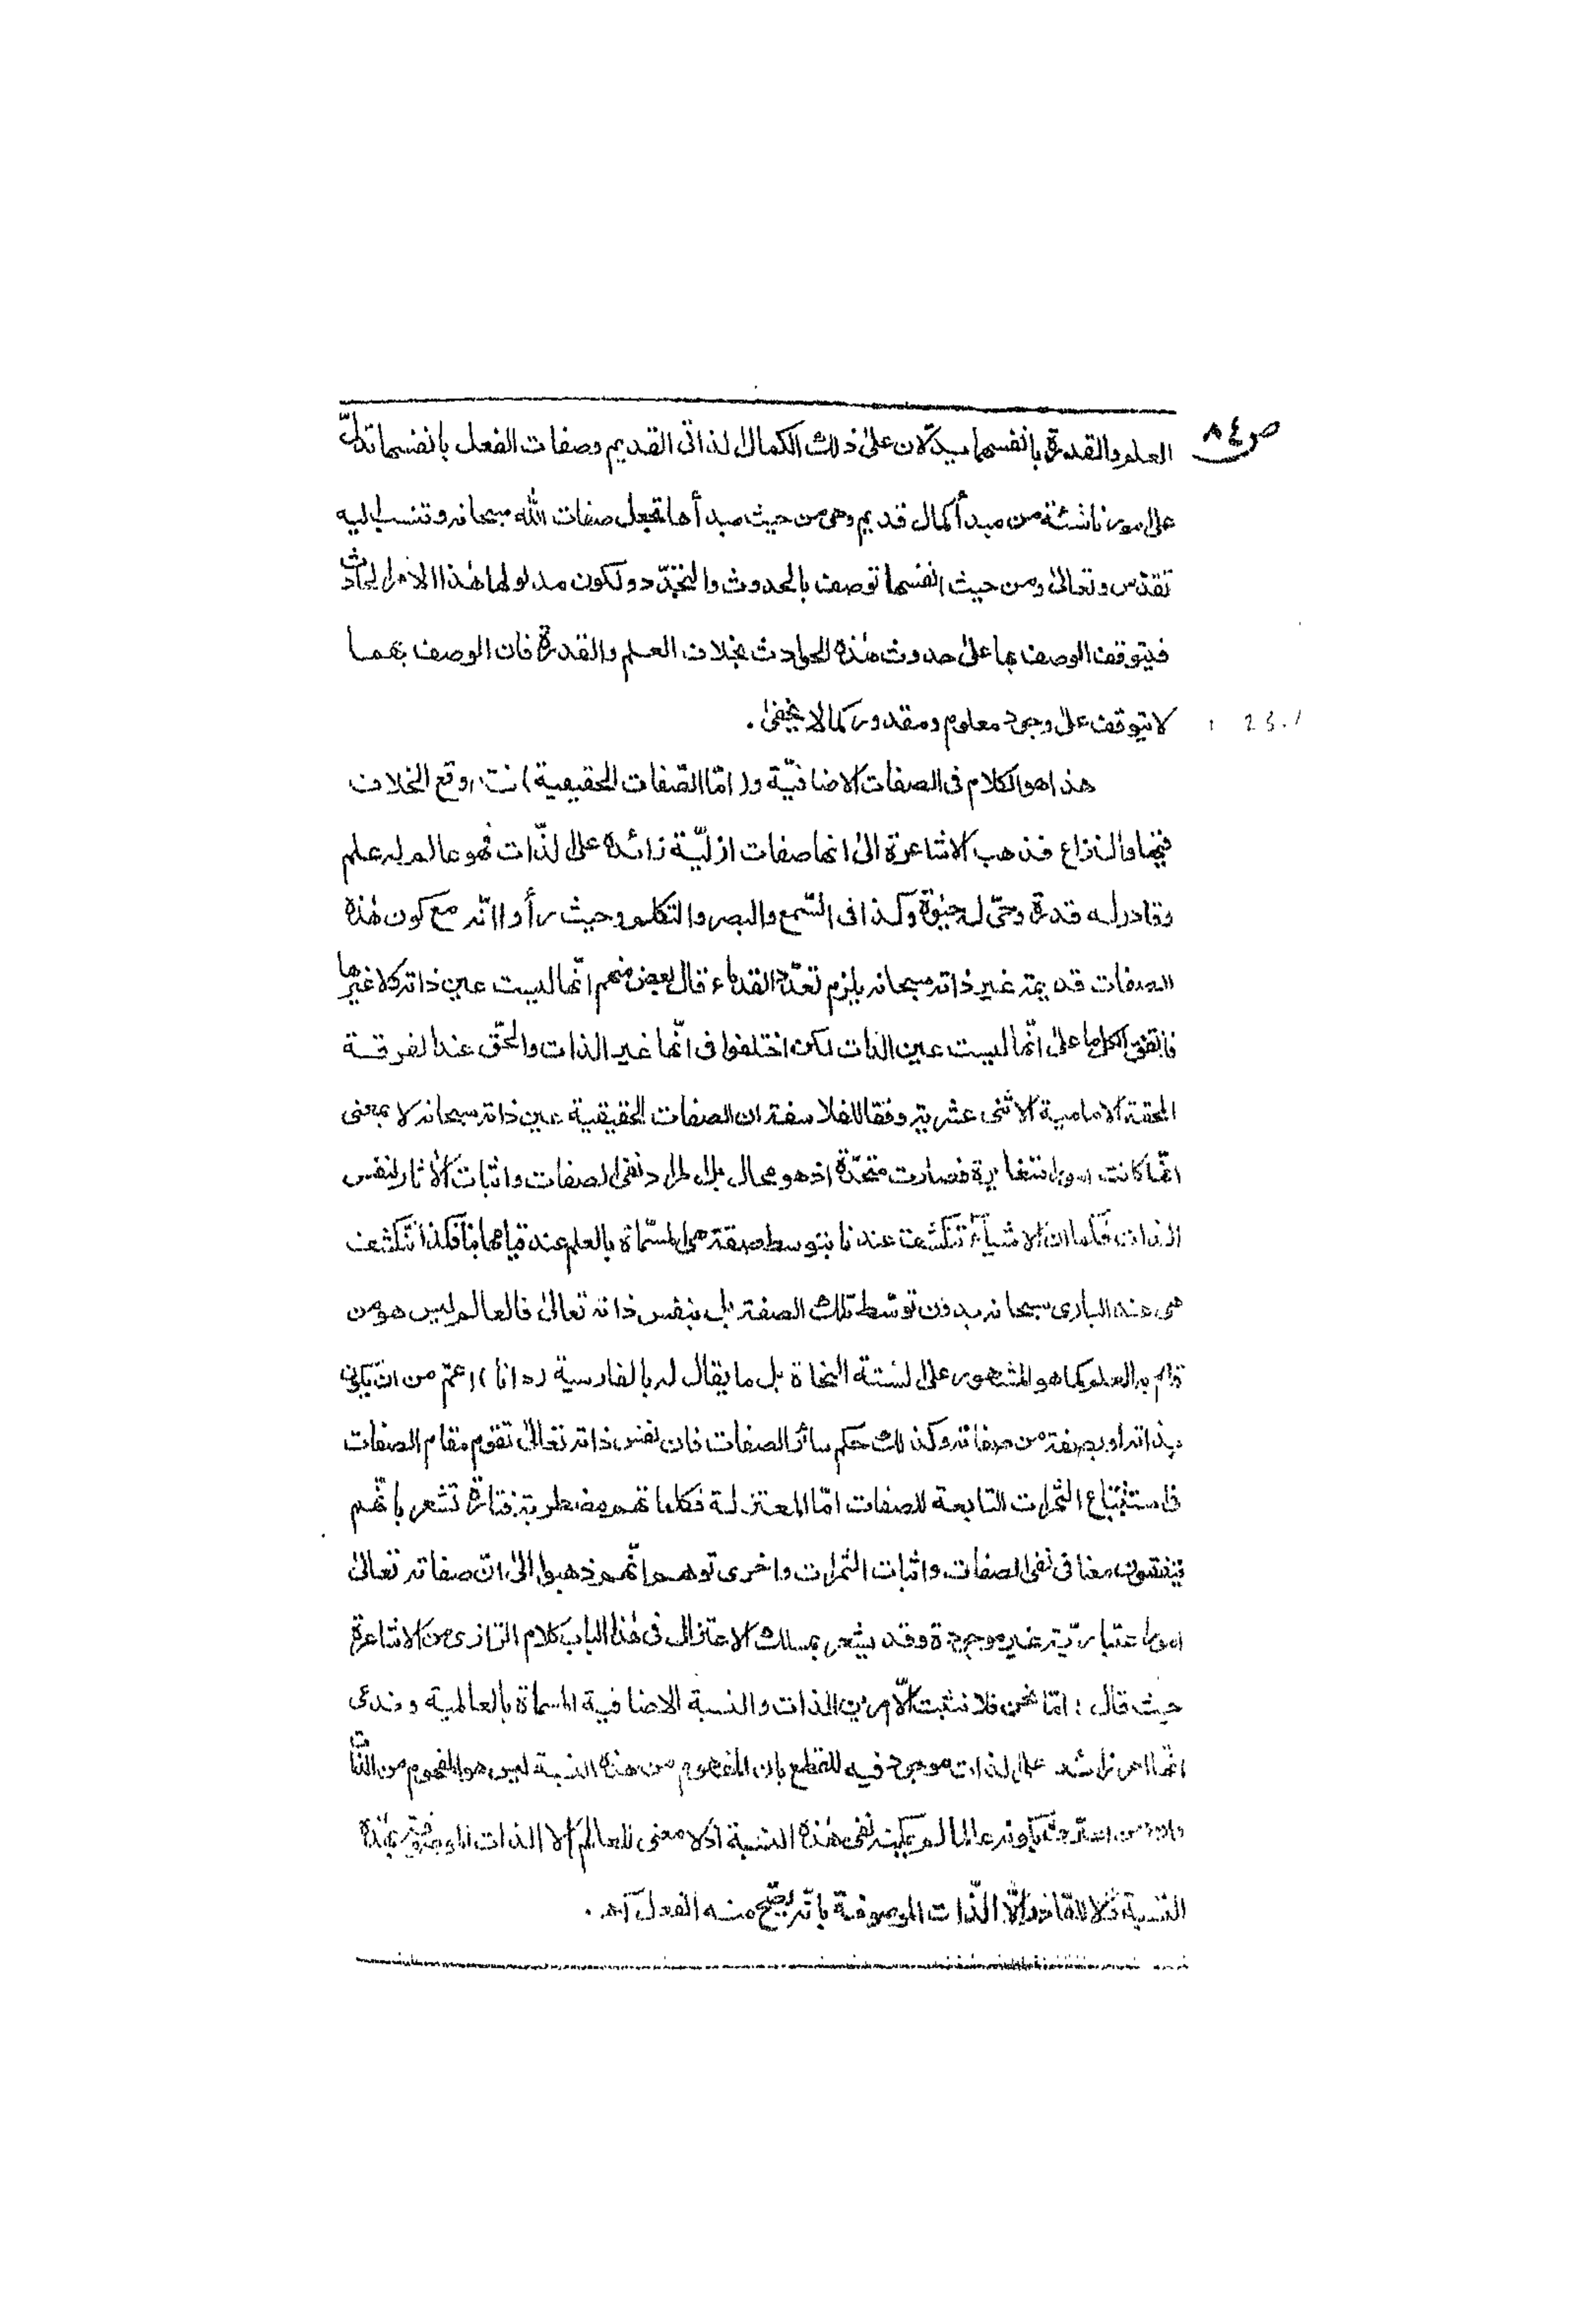 ص ٨٤
العلم والقدرة بانفسهما يدلان على ذلك الكمال الذاتى القديم وصفات الفعل بانفسها تدلّ
على امور ناشئة من مبدأ كمال قديم وهى من حيث مبدأها تجعل صفات الله سبحانه وتنسب اليه
تقدّس وتعالىٰ ومن حيث انفسها توصف بالحدوث والتجدّد ولكون مدلولها هٰذا الامر الحادث
فيتوقف الوصف بها علىٰ حدوث هٰذه الحوادث بخلاف العلم والقدرة فان الوصف بهما
لا يتوقف على وجود معلوم ومقدور كما لا يخفىٰ .
هذا هو الكلام فى الصفات الاضافيّة و( امّا الصّفات الحقيقية ) وقع الخلاف
فيها والنزاع فذهب الاشاعرة الىٰ انها صفات ازليّة زائدة على الذّات فهو عالم له علم
وقادر له قدرة وحىّ له حيٰوة وكذا فى السّمع والبصر والتكلم وحيث رأوا انّه مع كون هٰذه
الصفات قديمة غير ذاته سبحانه يلزم تعدّد القدماء قال بعض منهم انّها ليست عين ذاته ولا غيرها
فاتفق علىٰ انّها ليست عين الذات لكن اختلفوا فى انّها غير الذات والحقّ عند الفرقة
المحقة الامامية الاثنى عشرية وفقا للفلاسفة ان الصفات الحقيقية عين ذاته سبحانه لا بمعنى
انّها كانت امورا متغايرة فصارت متحدّة اذ هو محال بل المراد نفى الصفات واثبات الاٰثار لنفس
الذات فكما ان الاشيآء تنكشف عندنا بتوسط صفة هى المسمّاة بالعلم عند قيامها بنا فكذا تنكشف
هى عند البارى سبحانه بدون توسّط تلك الصفة بل بنفس ذاته تعالىٰ فالعالم ليس هو من
قام به العلم كما هو المشهور على السنة النحاة بل ما يقال له بالفارسية ( دانا ) اعمّ من ان يكون
بذاته او بصفة من صفاته وكذلك حكم سائر الصفات فان نفس ذاته تعالىٰ تقوم مقام الصفات
فى استتباع الثمرات التابعة للصفات امّا المعتزلة فكلماتهم مضطربة فتارة تشعر بانّهم
يتفقون معنا فى نفى الصفات واثبات الثمرات واخرى توهم انّهم ذهبوا الىٰ انّ صفاته تعالىٰ
امور اعتباريّة غير موجودة وقد يشعر بمسلك الاعتزال فى هٰذا الباب كلام الرّازى من الاشاعرة
حيث قال : امّا نحن فلا نثبت الّا امرين الذات والنسبة الاضافية المسماة بالعالمية وندعى
انّها امر زائد على الذات موجود فيه للقطع بان المفهوم من هذه النسبة ليس هو المفهوم من الذات
من اعترف بكونه عالما لم يمكنه نفى هٰذه النسبة اذ لا معنى للعالم الا الذات الموصوفة بهٰذه
النسبة ولا للقادر الّا الذّات الموصوفة بانّه يصّح منه الفعل آه .